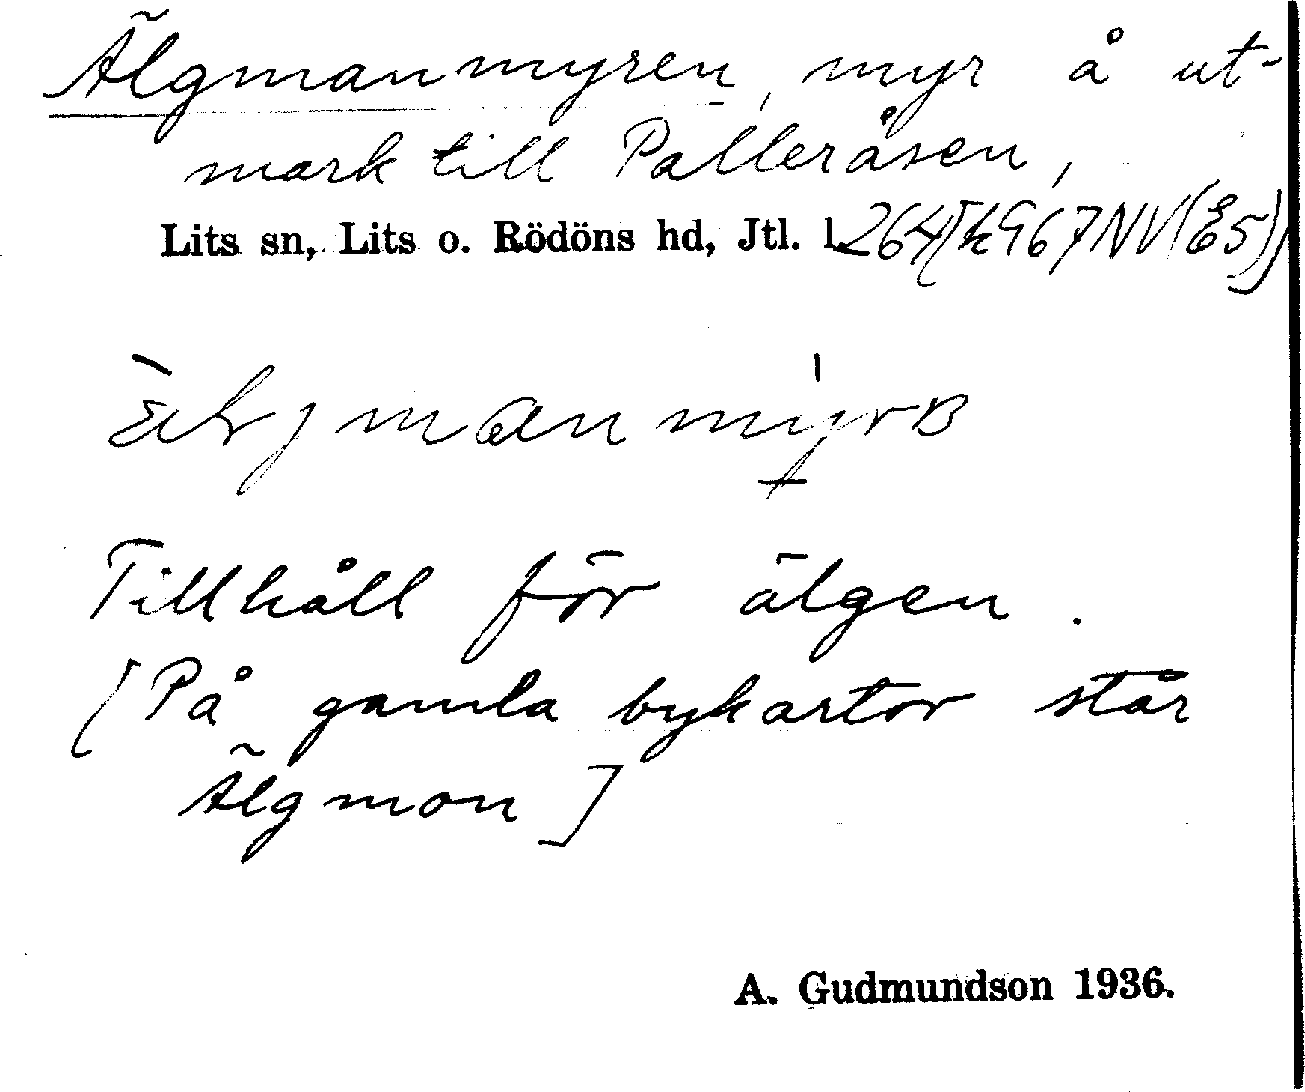 Älgmanmyren, myr å ut-
mark till Palleråsen,
Lits sn, Lits o. Rödöns hd, Jtl. l.
Tillhåll för älgen.
[På gamla bykartor står
Älgmon]
A. Gudmundson 1936.